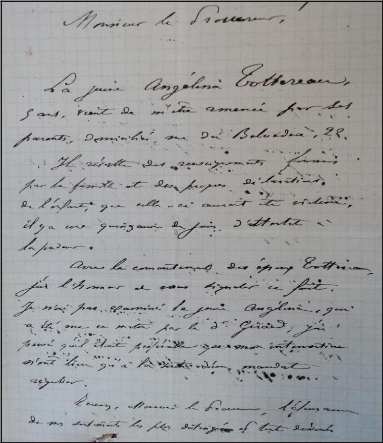 Monsieur le Procureur,
La jeune Angélina Tottereau,
5 ans, vient de m'être amenée par ses
parents, domiciliés rue du Belvédère, 22.
Il résulte des renseignements fournis
par la famille et des propres déclarations
de l'enfant, que celle-ci aurait été victime,
il y a une quinzaine de jours, d'attentat à
la pudeur.
Avec le consentement des époux Tottereau,
j'ai l'honneur de vous signaler ce fait.
Je n'ai pas examiné la jeune Angélina, qui
a été vue ce matin par le Dr ; j'ai
pensé qu'il était préférable que mon intervention
n'eût lieu qu'à la suite d'un mandat
régulier.
Veuillez, Monsieur le Procureur, l'expression
de mes sentiments les plus distingués et tout dévoués